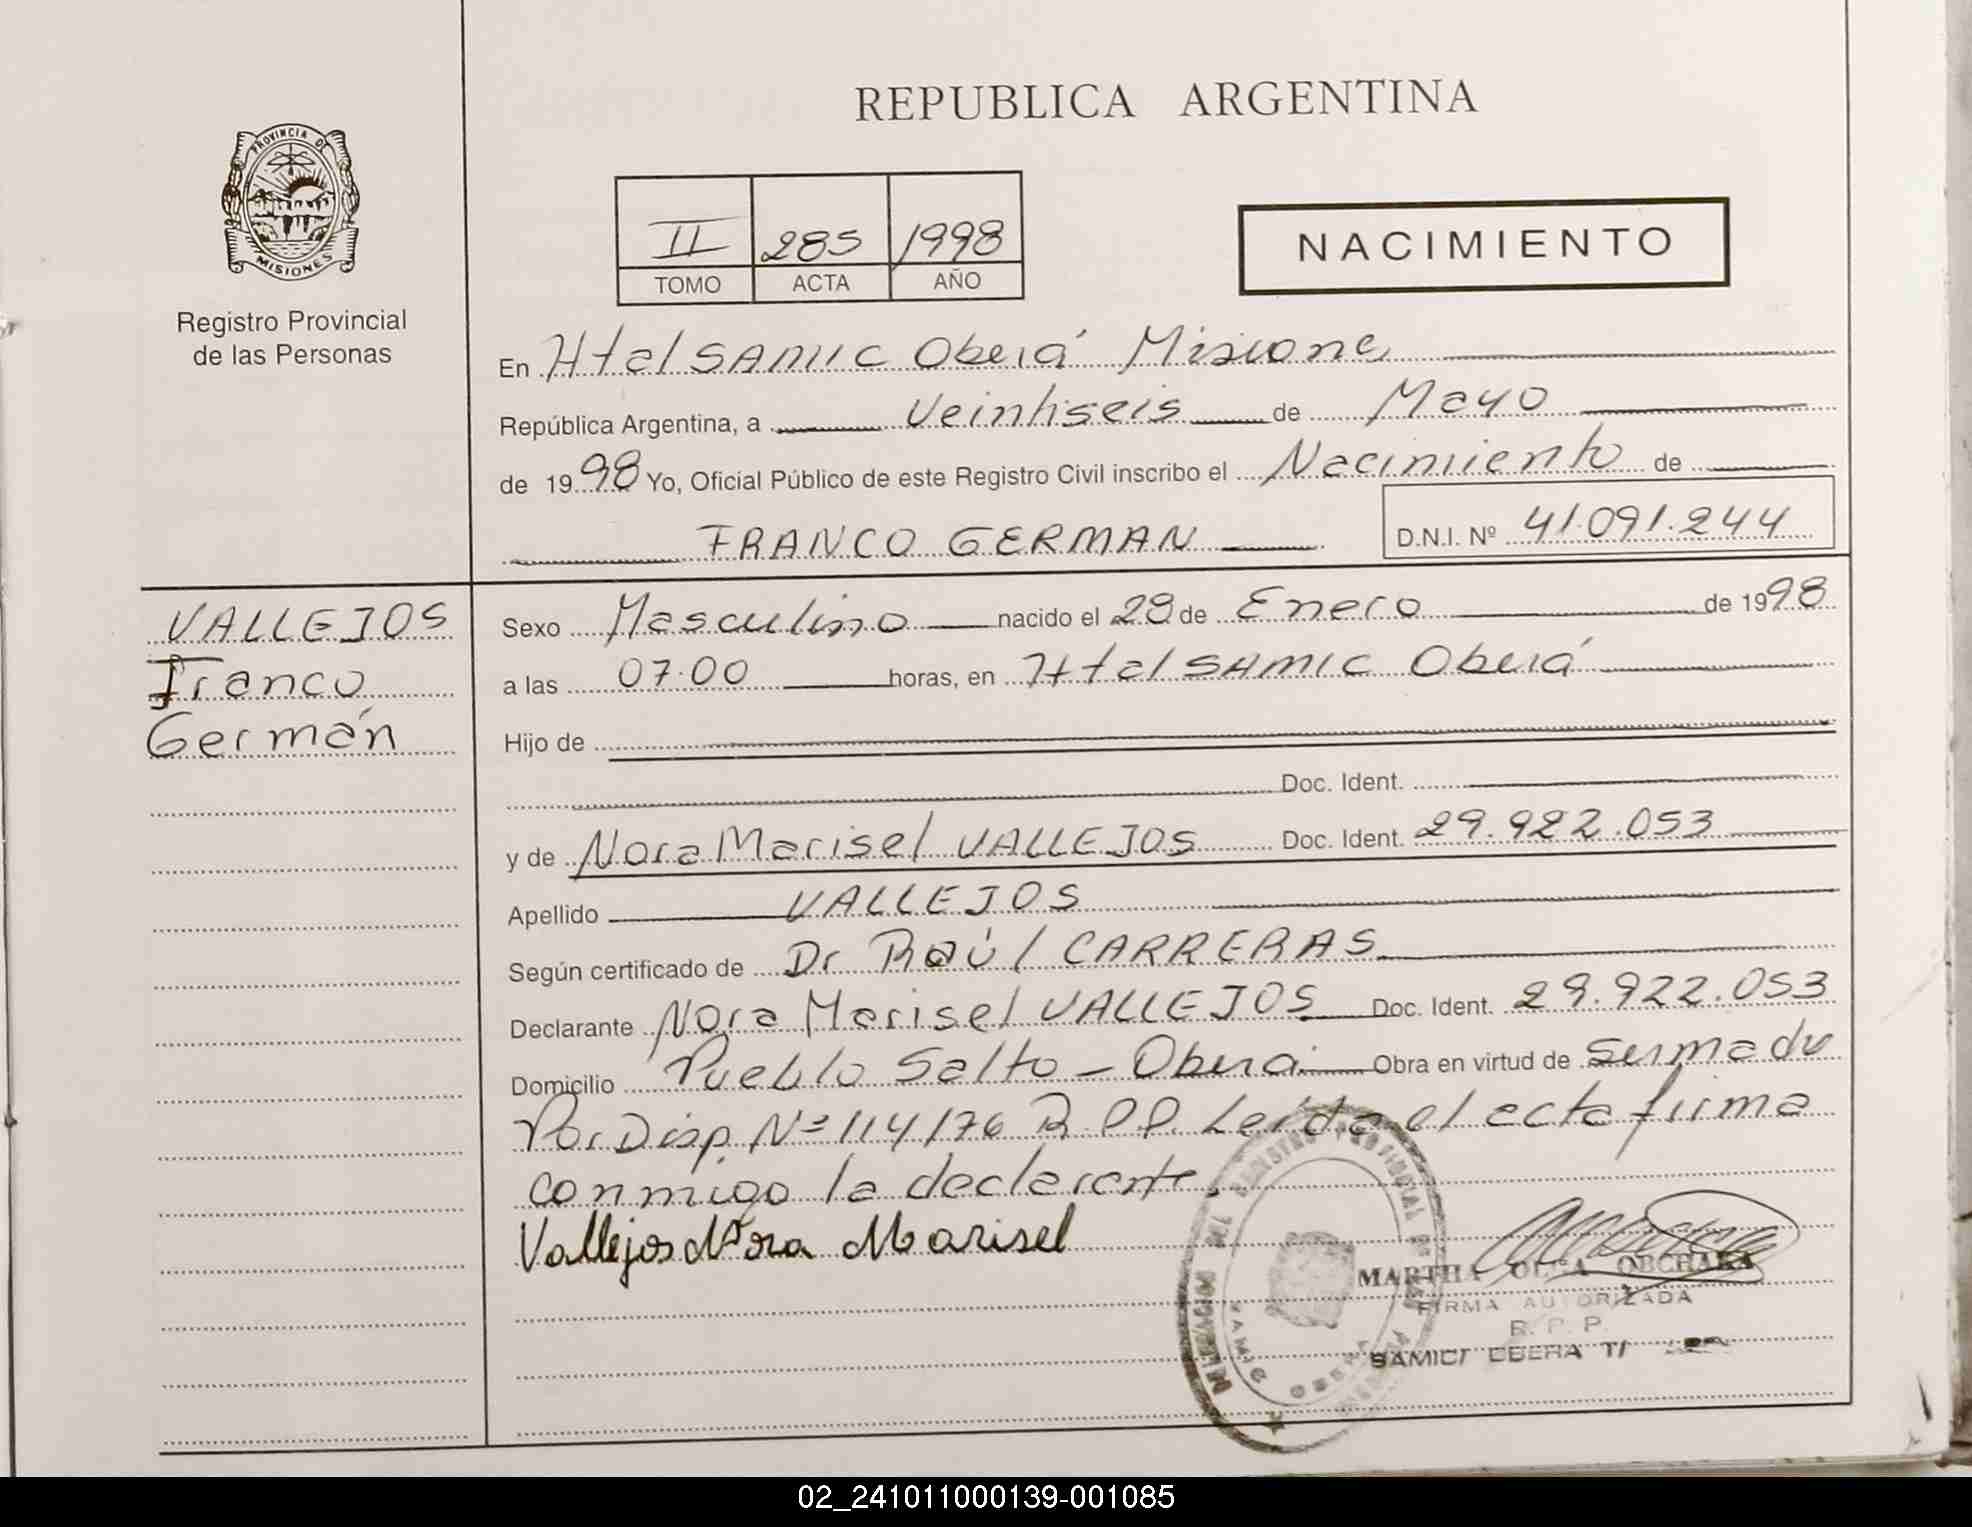 REPUBLICA ARGENTINA
PROVINCIA DE
MISIONES
Registro Provincial
de las Personas
II 285 1998
TOMO ACTA AÑO
NACIMIENTO
En Htal SAMIC Oberá Misiones
República Argentina, a Veintiseis de Mayo
de 1998 Yo, Oficial Público de este Registro Civil inscribo el Nacimiento de
FRANCO GERMAN D.N.I. Nº 41.091.244
VALLEJOS
Franco
Germán
Sexo Masculino nacido el 28 de Enero de 1998
a las 07.00 horas, en Htal SAMIC Oberá
Hijo de
Doc. Ident.
y de Nora Marisel VALLEJOS Doc. Ident. 29.922.053
Apellido VALLEJOS
Según certificado de Dr Raúl CARRERAS
Declarante Nora Marisel VALLEJOS Doc. Ident. 29.922.053
Domicilio Pueblo Salto - Oberá Obra en virtud de
Por Disp. Nº 114/76 R.P.P. Leída el acta firma
conmigo la declarante.
Vallejos Nora Marisel
MARTHA OLGA
FIRMA AUTORIZADA
R. P. P.
02_241011000139-001085